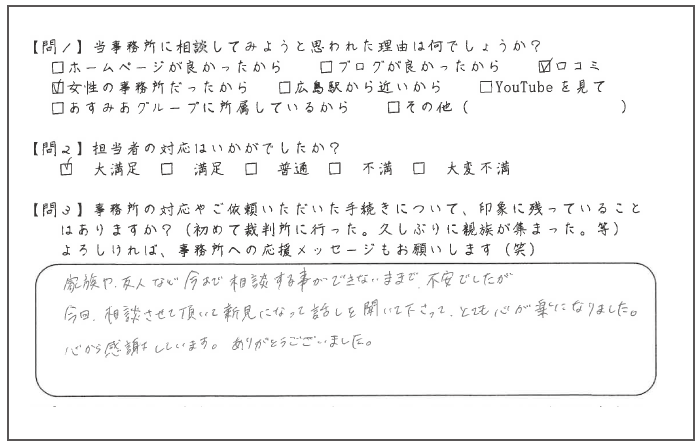 【問1】当事務所に相談してみようと思われた理由は何でしょうか？
□ホームページが良かったから □ブログが良かったから ☑口コミ
☑女性の事務所だったから □広島駅から近いから □YouTubeを見て
□あすみあグループに所属しているから □その他（ ）
【問2】担当者の対応はいかがでしたか？
☑ 大満足 □ 満足 □ 普通 □ 不満 □ 大変不満
【問3】事務所の対応やご依頼いただいた手続きについて、印象に残っていること
はありますか？（初めて裁判所に行った。久しぶりに親族が集まった。等）
よろしければ、事務所への応援メッセージもお願いします（笑）
家族や、友人など今まで相談する事ができないままで、不安でしたが
今回、相談させて頂いて親身になって話しを聞いて下さって、とても心が楽になりました。
心から感謝しています。ありがとうございました。